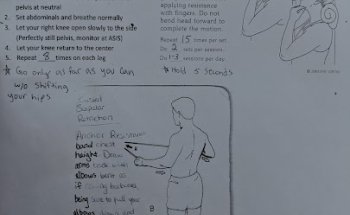 pelvis at neutral
2. Set abdominals and breathe normally
3. Let your right knee open slowly to the side
(Perfectly still pelvis, monitor at ASIS)
4. Let your knee return to the center
5. Repeat 8 times on each leg
☆ Go only as far as you can
w/o shifting
your hips
applying resistance
with fingers. Do not
bend head forward to
complete the motion.
Repeat 15 times per set.
Do 2 sets per session.
Do 1-3 sessions per day.
☆ Hold 5 seconds
Scapular
Retraction
Anchor Resistance
band chest
height Draw
arms back with
elbows bent as
if
being sure to pull your
elbows down and
B